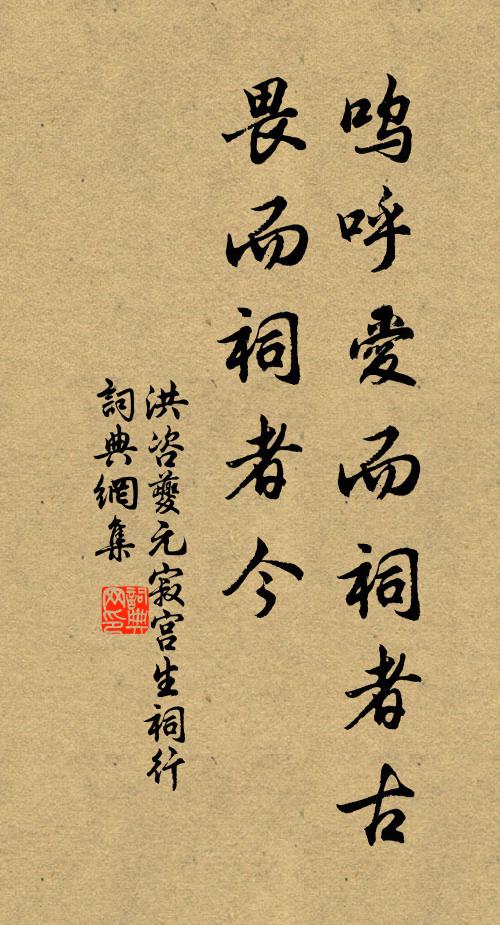 嗚呼愛而祠者古
畏而祠者今
洪咨夔元寂宮生祠行
詞典網集
詞典网印